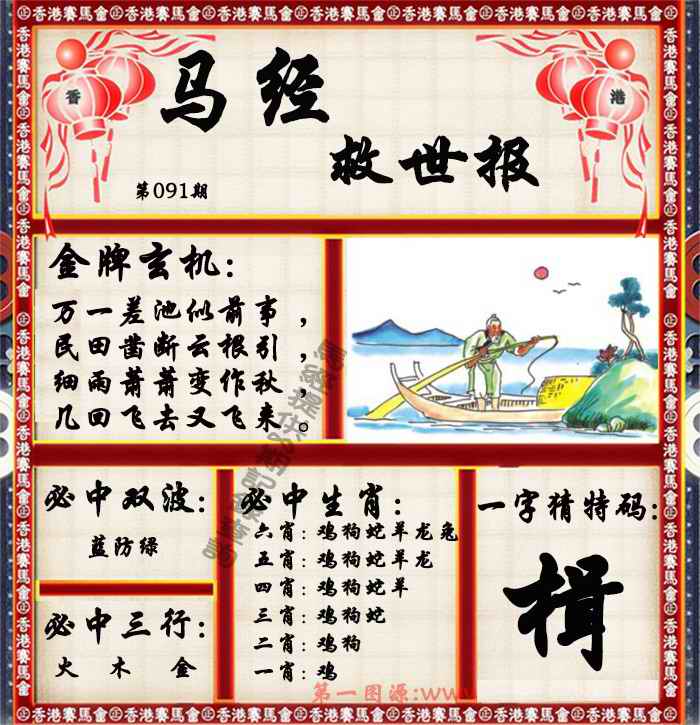 香港賽馬會
香 港
马经
救世报
第091期
金牌玄机:
万一差池似前事，
民田凿断云根引，
细雨萧萧变作秋，
几回飞去又飞来。
必中双波:
蓝防绿
必中三行:
火 木 金
必中生肖:
六肖: 鸡狗蛇羊龙兔
五肖: 鸡狗蛇羊龙
四肖: 鸡狗蛇羊
三肖: 鸡狗蛇
二肖: 鸡狗
一肖: 鸡
一字猜特码:
楫
第一图源:www